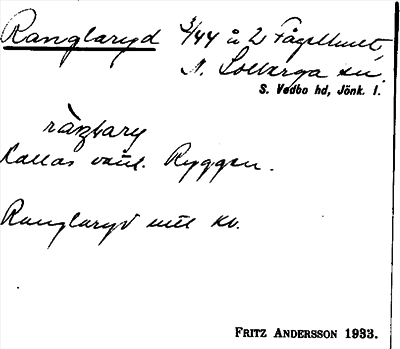 Ranglaryd 3/44 å 2 Fågelhult,
N. Solberga sn.
S. Vedbo hd, Jönk. l.
Kallas vanl. Ryggen.
Ranglaryd enl kb.
FRITZ ANDERSSON 1933.